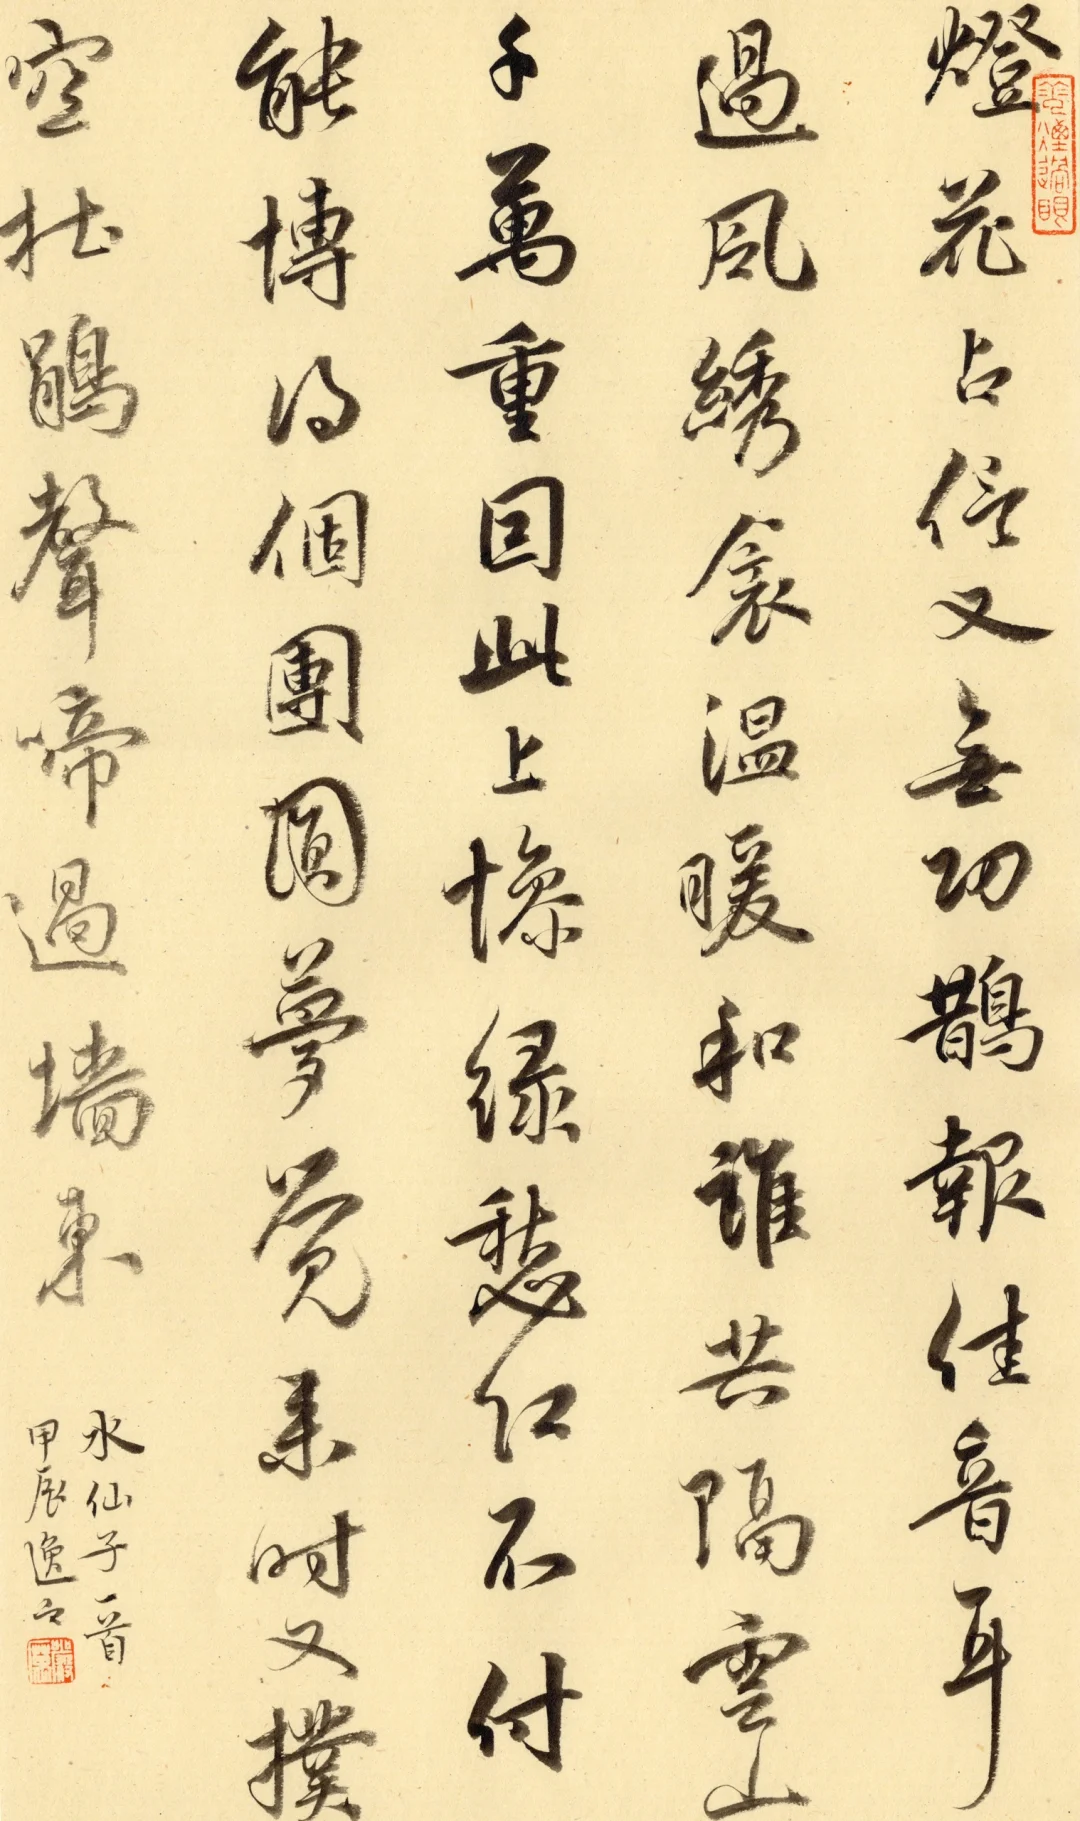 燈花占信又無功鵲報佳音耳
過風綉衾温暖和誰共隔雲山
千萬重因此上惨緑愁红不付
能博得個團圓夢覺来時又撲
空杜鵑聲啼過墙東
水仙子一首
甲辰逸